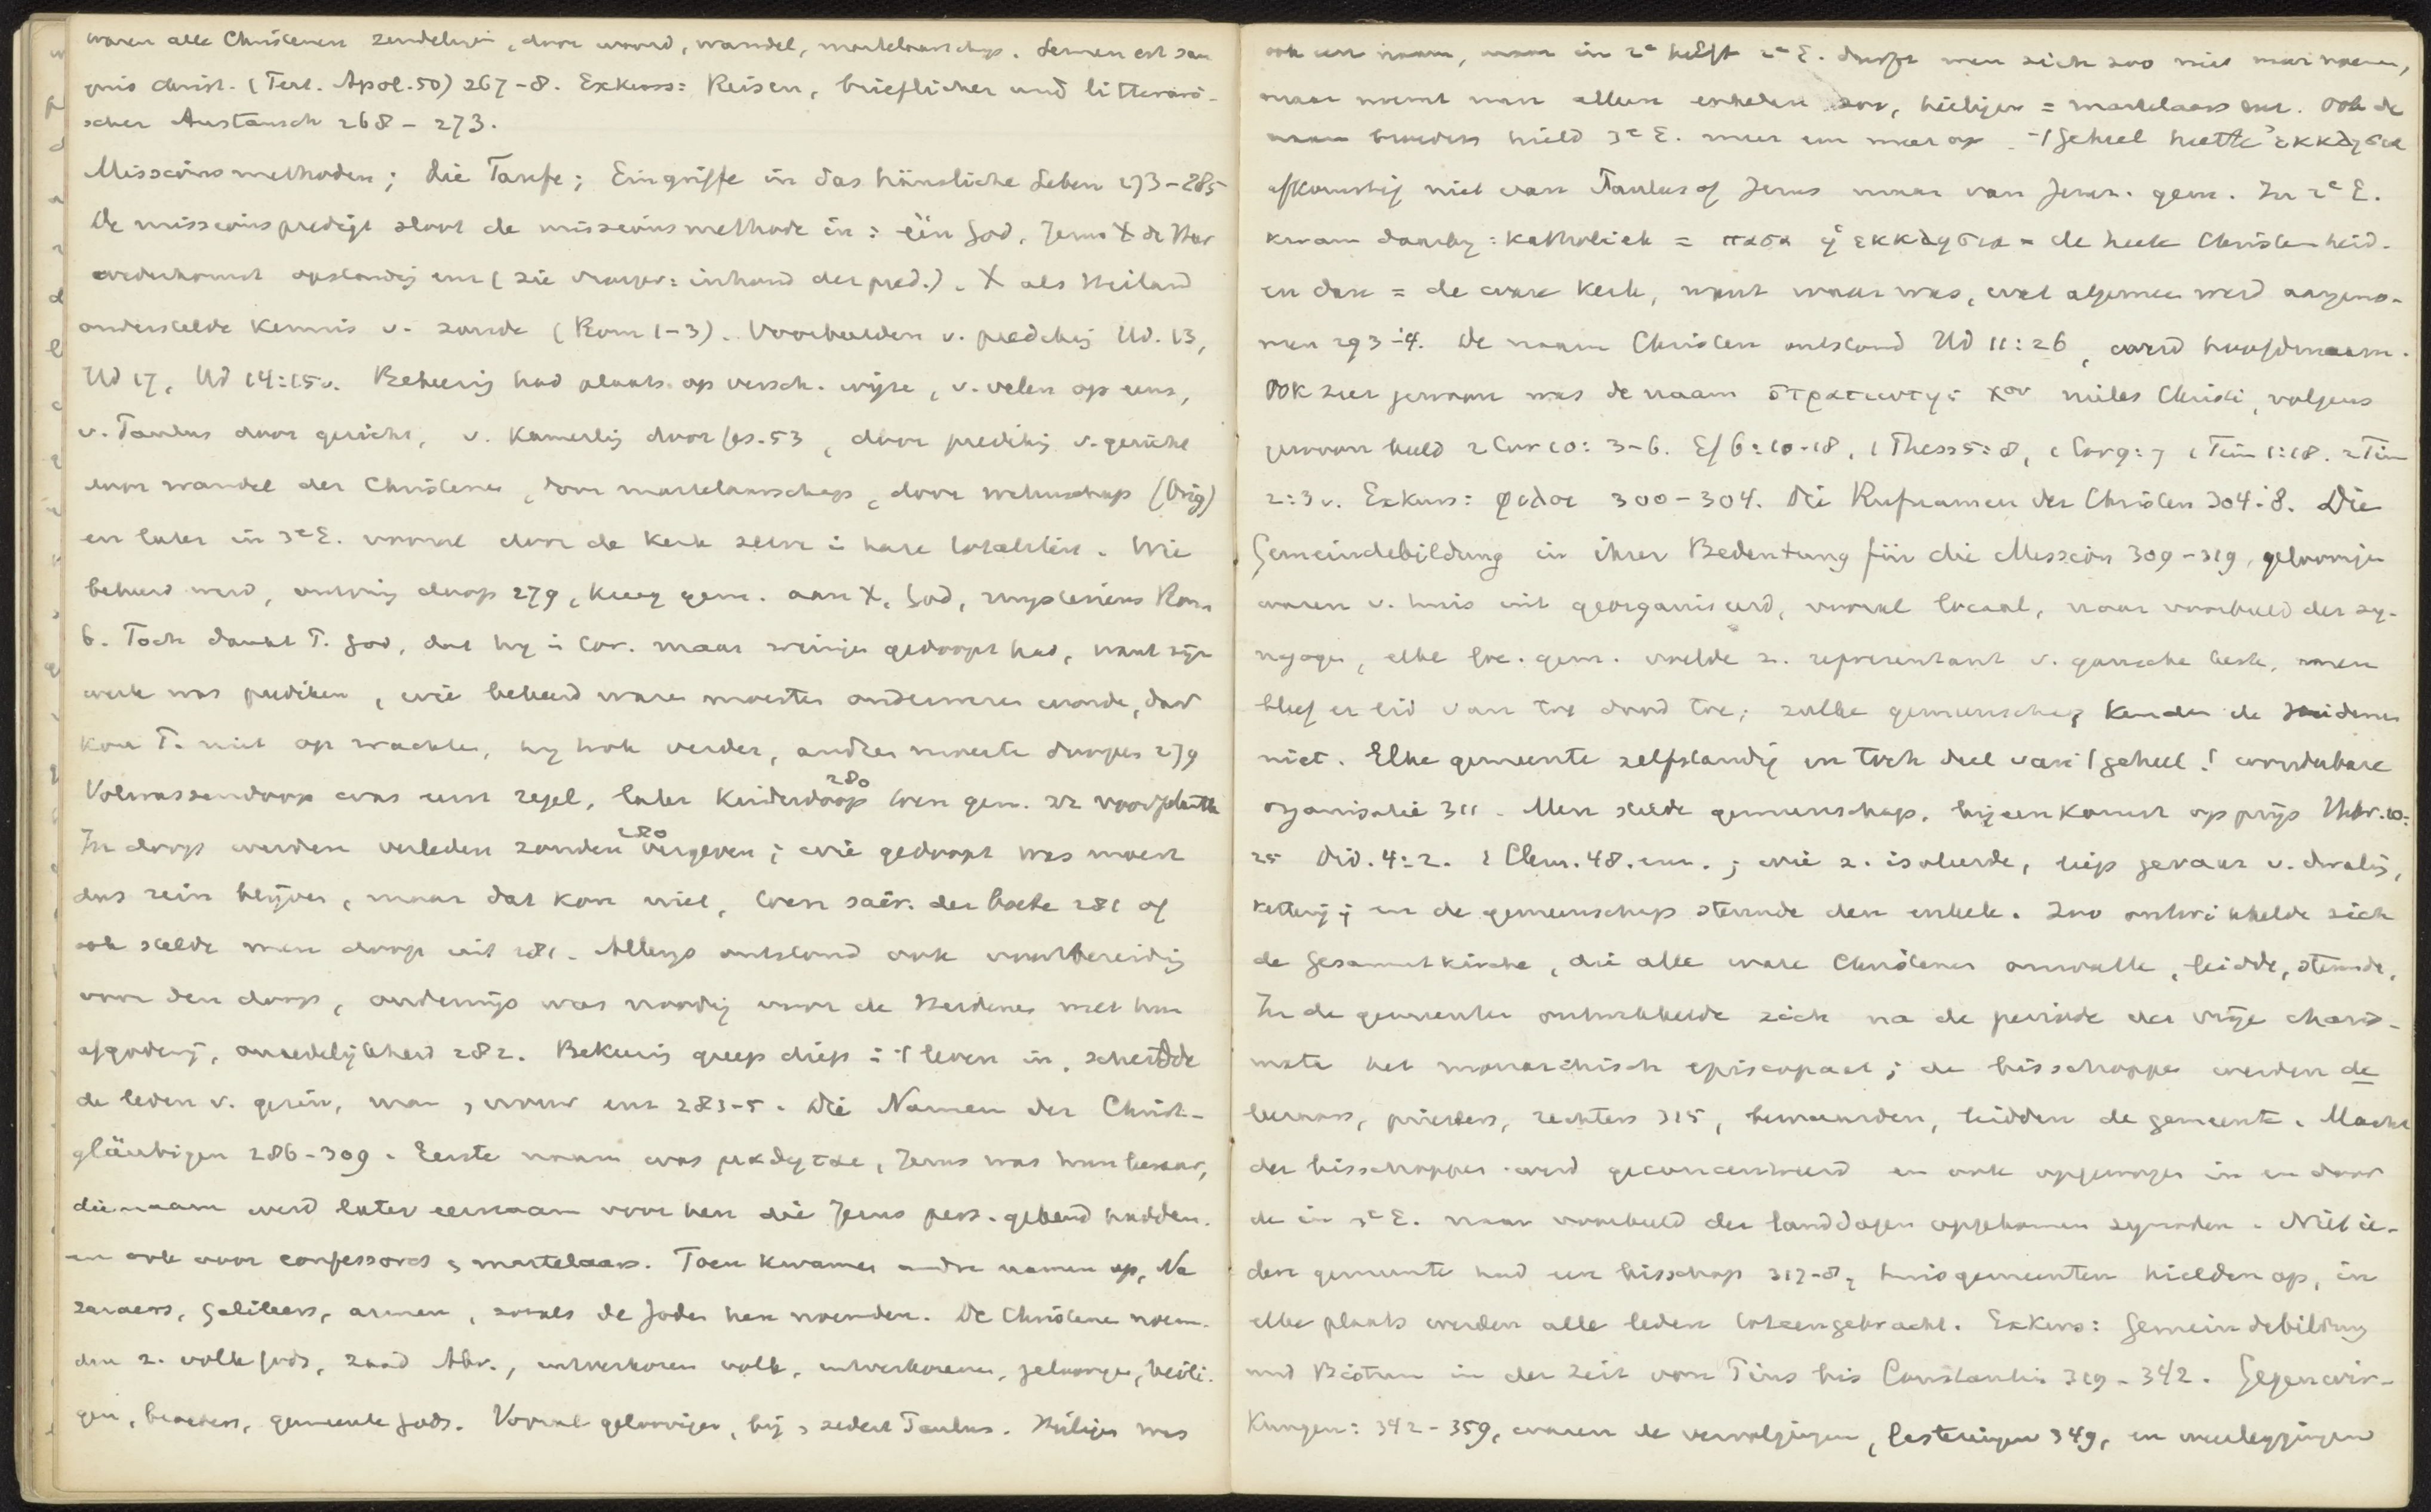 waren alle Christenen zendelingen, door woord, wandel, martelaarschap. Semen est san
guis christ. (Tert. Apol. 50) 267-8. Exkurs: Reisen, brieflicher und litterari-
scher Austausch 268 - 273.
Missionsmethoden; die Taufe; Eingriffe in das häusliche Leben 273-285
De missionspredigt sloot de missionsmethode in: één God, Jezus X de Heer
wederkomst opstanding enz (zie vroeger: inhoud der pred.). X als Heiland
onderstelde kennis v. zonde (Rom 1-3). Voorbeelden v. prediking Hd. 13,
Hd 17, Hd 14:15v. Bekeering had plaats op versch. wijze, v. velen op eens,
v. Paulus door gezicht, v. Kamerling door Jes. 53, door prediking v. gericht
enz wandel der Christenen, door martelaarschap, door wetenschap (Orig)
en later in 3e E. vooral door de Kerk zelve in hare totaliteit. Wie
bekeerd werd, ontving doop 279, kreeg gem. aan X, God, mysterieus Rom
6. Toch dankt P. God, dat hij in Cor. maar weinigen gedoopt had, want zijn
werk was prediken, wie bekeerd waren moesten onderwezen worden, daar
kon P. niet op wachten, hij trok verder, andren moesten doopen 279
Volwassendoop was eerst regel, later Kinderdoop 280 toen gem. zich voortplantte
In doop werden verleden zonden 280 vergeven; wie gedoopt was moest
dus rein blijven, maar dat kon niet, toen sacr. der boete 281 of
ook stelde men doop uit 281. Allengs ontstond ook voorbereiding
voor den doop, onderwijs was noodig voor de Heidenen met hun
afgoderij, onzedelijkheid 282. Bekering greep diep in 't leven in, scheidde
de leden v. gezin, man, vrouw enz 283-5. Die Namen der Christ-
gläubigen 286-309. Eerste naam was μαθηται, Jezus was hun leeraar,
die naam werd later eernaam voor hen die Jezus pers. gekend hadden.
en ook voor confessores & martelaars. Toen kwamen andre namen op, Na
zaraeers, Galileers, armen, zooals de Joden hen noemden. De Christenen noem-
den z. volk Gods, zaad Abr., uitverkoren volk, uitverkorenen, geloovigen, heili-
gen, broeders, gemeente Gods. Vooral geloovigen, bij & sedert Paulus. Heiligen was
ook een naam, maar in 2e helft 2e E. durft men zich zoo niet meer noemen,
maar noemt men alleen enkelen zoo, heiligen = martelaars enz. Ook de
naam broeders hield 3e E. meer en meer op. 't Geheel heette ἐκκλησια
afkomstig niet van Paulus of Jezus maar van Jeruz. gem. In 2e E.
kwam daarbij: katholiek = πασα ἡ εκκλησια = de heele Christenheid.
en dan = de ware Kerk, want waar was, wat algemeen werd aangeno-
men 293-4. De naam Christen ontstond Hd 11:26, werd hoofdnaam.
Ook zeer gewoon was de naam στρατιωτης Χου miles Christi, volgens
gewoon beeld 2 Cor 10: 3-6. Ef 6:10-18, 1 Thess 5:8, 1 Cor 9:7 1 Tim 1:18. 2 Tim
2:3v. Exkurs: φιλοι 300-304. Die Rufnamen der Christen 304-8. Die
Gemeindebildung in ihrer Bedeutung für die Mission 309-319, geloovigen
waren v. huis uit georganiseerd, vooral locaal, naar voorbeeld der sy-
nagogen, elke loc. gem. voelde z. representant v. gansche kerk, men
bleef er lid van tot dood toe; zulke gemeenschap kenden de Heidenen
niet. Elke gemeente zelfstandig en toch deel van 't geheel! wonderbare
organisatie 311. Men stelde gemeenschap, bijeenkomst op prijs Hebr. 10:
25 Did. 4:2. 1 Clem. 48. enz.; wie z. isoleerde, liep gevaar v. dwaling,
ketterij; en de gemeenschap steunde den enkele. Zoo ontwikkelde zich
de Gesamtkirche, die alle ware Christenen omvatte, leidde, steunde.
In de gemeenten ontwikkelde zich na de periode der vrije charis-
mata het monarchisch episcopaat; de bisschoppen werden de
leeraars, priesters, rechters 315, bewaarden, leidden de gemeente. Macht
der bisschoppen werd geconcentreerd en ook opgewogen in en door
de in 3e E. naar voorbeeld der landdagen opgekomen synoden. Niet ie-
dere gemeente had een bisschop 317-8, huisgemeenten hielden op, in
elke plaats werden alle leden bijeengebracht. Exkurs: Gemeindebildung
und Bistum in der Zeit von Pius bis Constantin 319-342. Gegenwir-
kungen: 342-359, waren de vervolgingen, lasteringen 349, en weerleggingen